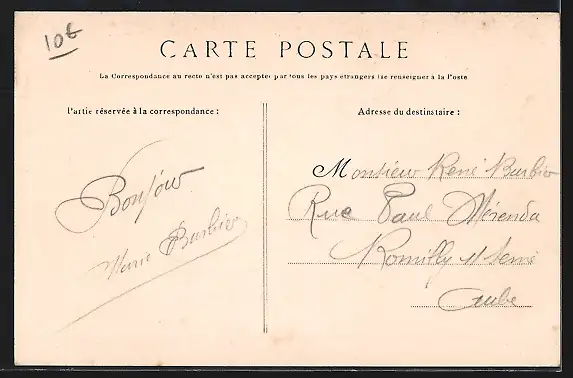 10€
CARTE POSTALE
La Correspondance au recto n'est pas acceptée par tous les pays étrangers (se renseigner à la Poste
Partie réservée à la correspondance :
Adresse du destinataire :
Bonjour
Barbier
Monsieur René Barbier
Rue Paul Mérenda
Romilly s/ Seine
Aube